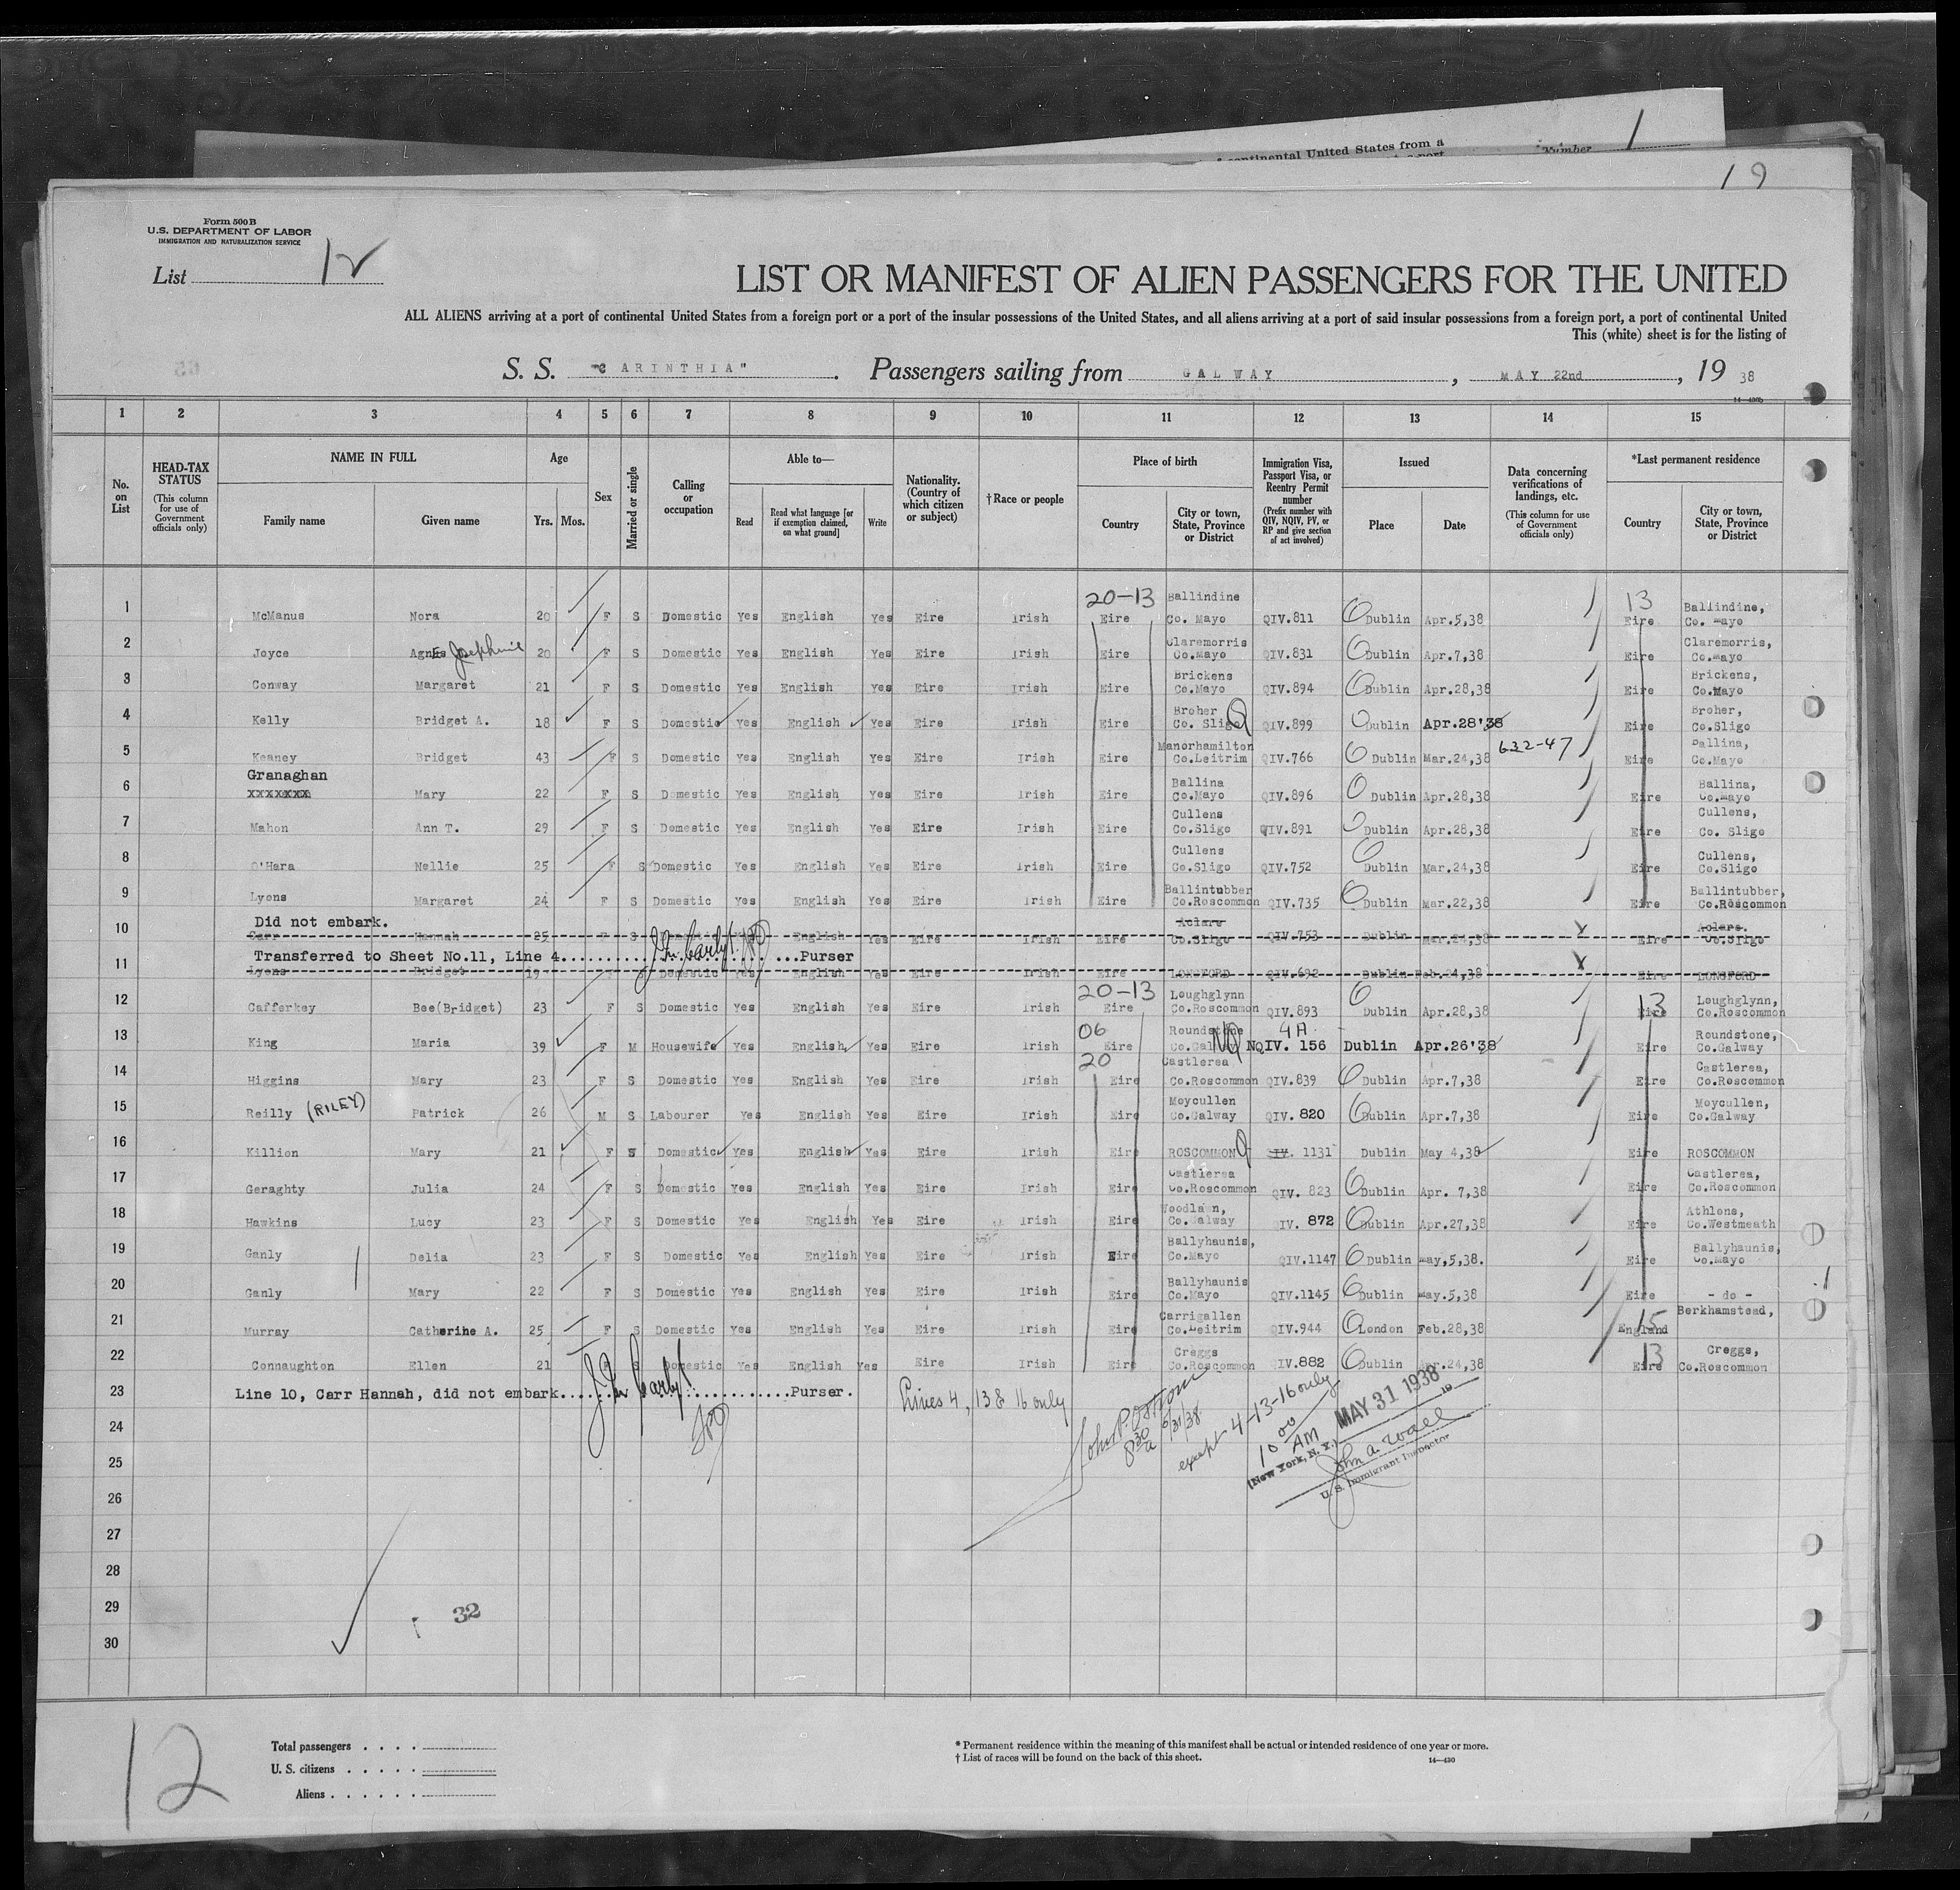 continental United States from a
Number 1
19
Form 500 B
U.S. DEPARTMENT OF LABOR
IMMIGRATION AND NATURALIZATION SERVICE
List 12
LIST OR MANIFEST OF ALIEN PASSENGERS FOR THE UNITED
ALL ALIENS arriving at a port of continental United States from a foreign port or a port of the insular possessions of the United States, and all aliens arriving at a port of said insular possessions from a foreign port, a port of continental United
This (white) sheet is for the listing of
S. S. "CARINTHIA". Passengers sailing from GALWAY, MAY 22nd, 19 38
1 2 3 4 5 6 7 8 9 10 11 12 13 14 15
No. on List
HEAD-TAX STATUS (This column for use of Government officials only)
NAME IN FULL Family name Given name
Age Yrs. Mos.
Sex
Married or single
Calling or occupation
Able to— Read Read what language [or if exemption claimed, on what ground] Write
Nationality. (Country of which citizen or subject)
† Race or people
Place of birth Country City or town, State, Province or District
Immigration Visa, Passport Visa, or Reentry Permit number (Prefix number with QIV, NQIV, PV, or RP and give section of act involved)
Issued Place Date
Data concerning verifications of landings, etc. (This column for use of Government officials only)
*Last permanent residence Country City or town, State, Province or District
1 McManus Nora 20 F S Domestic Yes English Yes Eire Irish 20-13 Eire Ballindine Co. Mayo QIV.811 Dublin Apr.5,38 13 Eire Ballindine, Co. Mayo
2 Joyce Agnes Josephine 20 F S Domestic Yes English Yes Eire Irish Eire Claremorris Co.Mayo QIV.831 Dublin Apr.7,38 Eire Claremorris, Co.Mayo
3 Conway Margaret 21 F S Domestic Yes English Yes Eire Irish Eire Brickens Co.Mayo QIV.894 Dublin Apr.28,38 Eire Brickens, Co.Mayo
4 Kelly Bridget A. 18 F S Domestic Yes English Yes Eire Irish Eire Broher Co. Sligo QIV.899 Dublin Apr.28'38 Eire Broher, Co.Sligo
5 Keaney Bridget 43 F S Domestic Yes English Yes Eire Irish Eire Manorhamilton Co.Leitrim QIV.766 Dublin Mar.24,38 632-47 Eire Ballina, Co.Mayo
6 Granaghan xxxxxxx Mary 22 F S Domestic Yes English Yes Eire Irish Eire Ballina Co.Mayo QIV.896 Dublin Apr.28,38 Eire Ballina, Co.Mayo
7 Mahon Ann T. 29 F S Domestic Yes English Yes Eire Irish Eire Cullens Co.Sligo QIV.891 Dublin Apr.28,38 Eire Cullens, Co. Sligo
8 O'Hara Nellie 25 F S Domestic Yes English Yes Eire Irish Eire Cullens Co.Sligo QIV.752 Dublin Mar.24,38 Eire Cullens, Co.Sligo
9 Lyons Margaret 24 F S Domestic Yes English Yes Eire Irish Eire Ballintubber Co.Roscommon QIV.735 Dublin Mar.22,38 Eire Ballintubber, Co.Roscommon
Did not embark.
10 Carr Hannah 25 F S Domestic English Yes Eire Irish Eire Aclare Co.Sligo QIV.753 Dublin Mar.24,38 Eire Aclare. Co.Sligo
Transferred to Sheet No.11, Line 4 Purser
11 Lyons Bridget 19 F S Domestic Yes English Yes Eire Irish Eire LONGFORD QIV.692 Dublin Feb.24,38 Eire LONGFORD
12 Cafferkey Bee(Bridget) 23 F S Domestic Yes English Yes Eire Irish 20-13 Eire Loughglynn Co.Roscommon QIV.893 Dublin Apr.28,38 13 Eire Loughglynn, Co.Roscommon
13 King Maria 39 F M Housewife Yes English Yes Eire Irish 06 Eire Roundstone Co.Galway 4A NQIV. 156 Dublin Apr.26'38 Eire Roundstone, Co.Galway
14 Higgins Mary 23 F S Domestic Yes English Yes Eire Irish 20 Eire Castlerea Co.Roscommon QIV.839 Dublin Apr.7,38 Eire Castlerea, Co.Roscommon
15 Reilly (RILEY) Patrick 26 M S Labourer Yes English Yes Eire Irish Eire Moycullen Co.Galway QIV. 820 Dublin Apr.7,38 Eire Moycullen, Co.Galway
16 Killion Mary 21 F S Domestic Yes English Yes Eire Irish Eire ROSCOMMON QIV. 1131 Dublin May 4,38 Eire ROSCOMMON
17 Geraghty Julia 24 F S Domestic Yes English Yes Eire Irish Eire Castlerea Co.Roscommon QIV. 823 Dublin Apr. 7,38 Eire Castlerea, Co.Roscommon
18 Hawkins Lucy 23 F S Domestic Yes English Yes Eire Irish Eire Woodlawn, Co. Galway QIV. 872 Dublin Apr.27,38 Eire Athlone, Co.Westmeath
19 Ganly Delia 23 F S Domestic Yes English Yes Eire Irish Eire Ballyhaunis, Co.Mayo QIV.1147 Dublin May,5,38. Eire Ballyhaunis, Co.Mayo
20 Ganly Mary 22 F S Domestic Yes English Yes Eire Irish Eire Ballyhaunis Co.Mayo QIV.1145 Dublin May.5,38 Eire - do -
21 Murray Catherine A. 25 F S Domestic Yes English Yes Eire Irish Eire Carrigallen Co.Leitrim QIV.944 London Feb.28,38 15 England Berkhamstead,
22 Connaughton Ellen 21 F S Domestic Yes English Yes Eire Irish Eire Creggs Co.Roscommon QIV.882 Dublin Apr.24,38 13 Eire Creggs, Co.Roscommon
23 Line 10, Carr Hannah, did not embark Purser. Lines 4, 13 & 16 only
24
25
26
27
28
29
30
John P Ostrom 8 30 a 5/31/38
except 4-13-16 only
10 00 AM
MAY 31 1938
(New York, N. Y.) 19
John A. Wall
U. S. Immigrant Inspector
32
12
Total passengers
U. S. citizens
Aliens
* Permanent residence within the meaning of this manifest shall be actual or intended residence of one year or more.
† List of races will be found on the back of this sheet. 14—430